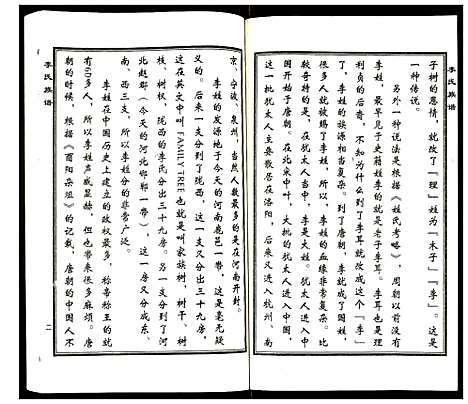 李氏族谱
子树的恩情，就改了「理」姓为「木子」「李」。这是
一种传说。
另外一种说法是根据《姓氏考略》，周朝以前没有
李姓，最早见于史籍姓李的就是老子李耳。李耳也是理
利贞的后裔，不知为什么到了李耳就改成这个「李」
了，李姓的族源相当复杂。到了唐朝，李就成了国姓，
很多人就被赐了李姓，所以，李姓的血缘非常复杂。比
较奇特的，就是犹太人当中，李是大姓。犹太人进入中
国开始于唐朝。在北宋中叶，大批的犹太人进入中国，
这一批犹太人主要散居在洛阳，后来又进入杭州、南
京、宁波、泉州，当然人数最多的是在河南开封。
李姓的发源地于今天的河南鹿邑一带，这是毫无疑
义的。后来一支分到了陇西，这一支又分出三十九房，
这在英文中叫 FAMILY TREE 也就是叫家族树，树干、树
枝、树权，陇西的李氏分出三十九房。另一支分到了河
北赵郡（今天的河北邯郸一带），这一房又分成东、
南、西三支，所以李姓分的非常广泛。
李姓在中国历史上建立的政权最多，称帝称王的就
有60多人，所以李姓声威显赫，但也带来很多麻烦。唐
朝的时候，根据《酉阳杂俎》的记载，唐朝的中国人不
李氏族谱
二